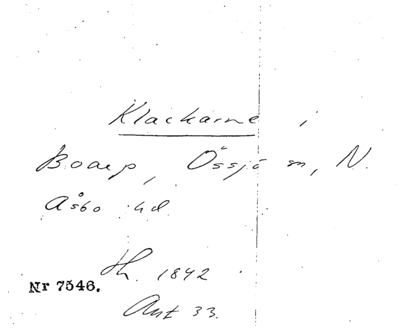 Klackarne i
Boarp, Össjö sn, N.
Åsbo hd.
Th. 1842
Nr 7546.
Ant 33.